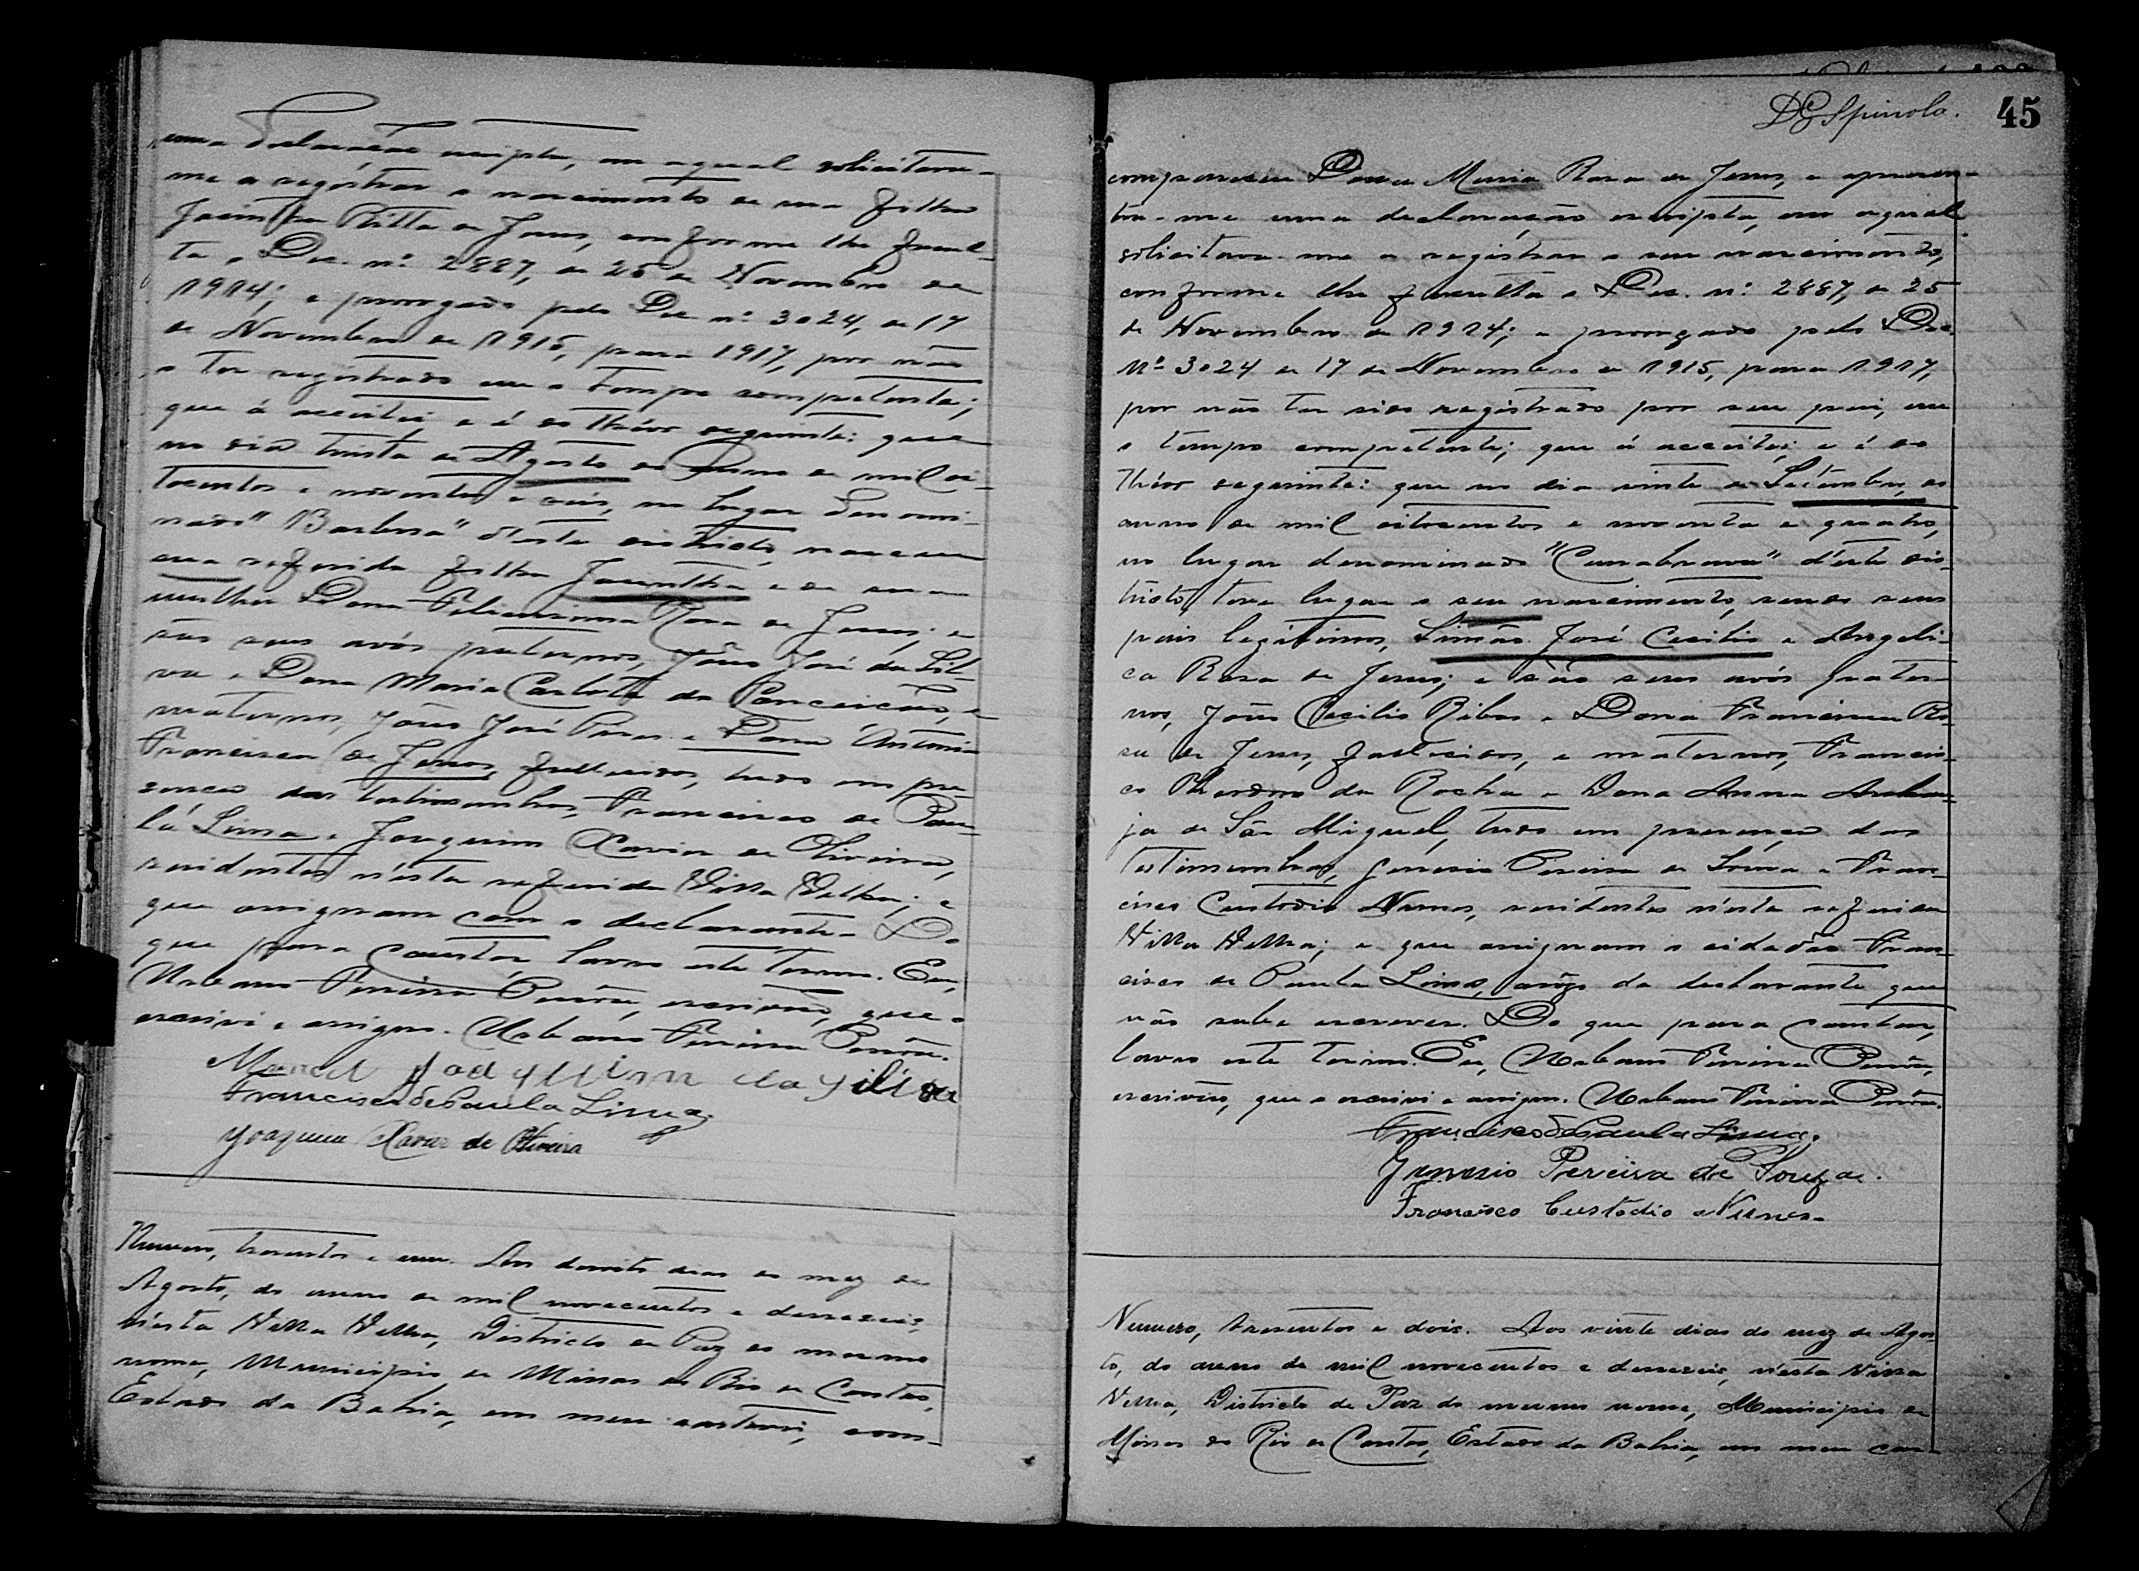 uma declaração escripta, em a qual solicitava-
me a registrar o nascimento de sua filha
Jacintha Ritta de Jesus, conforme lhe facul-
ta o Dec. nº 2887, de 25 de Novembro de
1914; e prorogado pelo Dec nº 3024, de 17
de Novembro de 1915, para 1917, por não
o ter registrado em o tempo competente;
que á acceitei e é do théor seguinte: que
no dia trinta de Agosto do anno de mil oi-
tocentos e noventa e seis, no lugar denomi-
nado "Barbosa" d'este districto, nasceu
sua referida filha Jacintha e de sua
mulher Dona Rosa de Jesus; e
são seus avós paternos, João José da Sil-
va e Dona Maria Carlota da Conceição, e
maternos, João José e Dona Antonia
Francisca de Jesus, fallecidos, tudo em pre-
sença das testimunhas, Francisco de Pau-
la Lima e Joaquim Xavier de Oliveira,
residentes n'esta referida Villa Velha; e
que assignam com o declarante. Do
que para constar lavro este termo. Eu,
Urbano Pereira, escrivão, que o
escrevi e assigno. Urbano Pereira
Manoel Joaquim da Silva
Francisco de Paula Lima
Joaquim Xavier de Oliveira
Numero, trezentos e um. Aos dezoito dias do mez de
Agosto, do anno de mil novecentos e dezeseis,
n'esta Villa Velha, Districto de Paz do mesmo
nome, Municipio de Minas do Rio de Contas,
Estado da Bahia, em meu cartorio, com-
DG Spinola. 45
compareceu Dona Maria Rosa de Jesus, e apresen-
tou-me uma declaração escripta, em a qual
solicitava-me a registrar o seu nascimento,
conforme lhe faculta o Dec. nº 2887, de 25
de Novembro de 1914; e prorogado pelo Dec.
Nº 3024 de 17 de Novembro de 1915, para 1917,
por não ter sido registrado por seu pai, em
o tempo competente; que á acceitei; e é do
théor seguinte: que no dia vinte de Setembro, do
anno de mil oitocentos e noventa e quatro,
no lugar denominado "Cannabrava" d'este dis-
tricto, teve lugar o seu nascimento, sendo seus
pais legitimos, Simão José Cecilio e Angeli-
ca Rosa de Jesus; e são seus avós pater-
nos, João Cecilio Ribas e Dona Francisca Ro-
sa de Jesus, fallecidos, e maternos, Francis-
co Theodoro da Rocha e Dona Anna Archan-
ja de São Miguel, tudo em presença das
testimunhas, Genesio Pereira de Souza e Fran-
cisco Custodio Nunes, residentes n'esta referida
Villa Velha; e que assignam o cidadão Fran-
cisco de Paula Lima, arôgo da declarante que
não sabe escrever. Do que para constar,
lavro este termo. Eu, Urbano Pereira
escrivão, que o escrevi e assigno. Urbano Pereira
Francisco de Paula Lima.
Genesio Pereira de Souza.
Francisco Custodio Nunes.
Numero, trezentos e dois. Aos vinte dias do mez de Agos-
to, do anno de mil novecentos e dezeseis, n'esta Villa
Velha, Districto de Paz do mesmo nome, Municipio de
Minas do Rio de Contas, Estado da Bahia, em meu car-